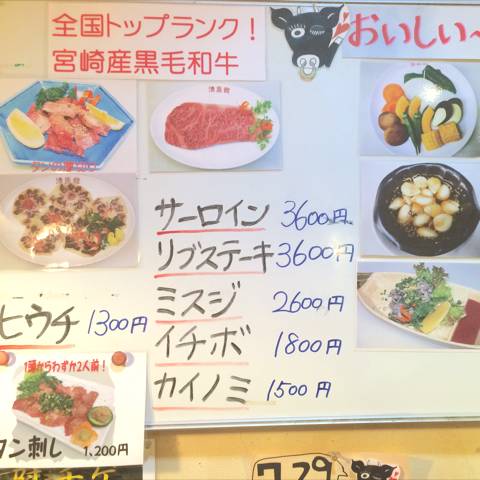 全国トップランク!
宮崎産黒毛和牛
おいしい~
清月館
サーロイン 3600円
リブステーキ 3600円
ミスジ 2600円
イチボ 1800円
カイノミ 1500円
ヒウチ 1300円
1頭からわずか2人前!
タン刺し 1,200円
729